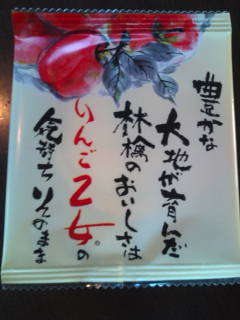 豊かな
大地が育んだ
林檎のおいしさは
りんご乙女®の
気持ちそのまま